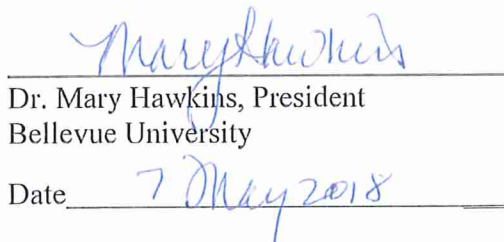 Mary Hawkins
Dr. Mary Hawkins, President
Bellevue University
Date 7 May 2018